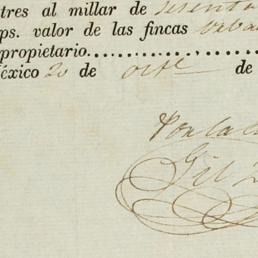 tres al millar de sesenta
ps. valor de las fincas urba
propietario
éxico 20 de octe de
Por la
Gil